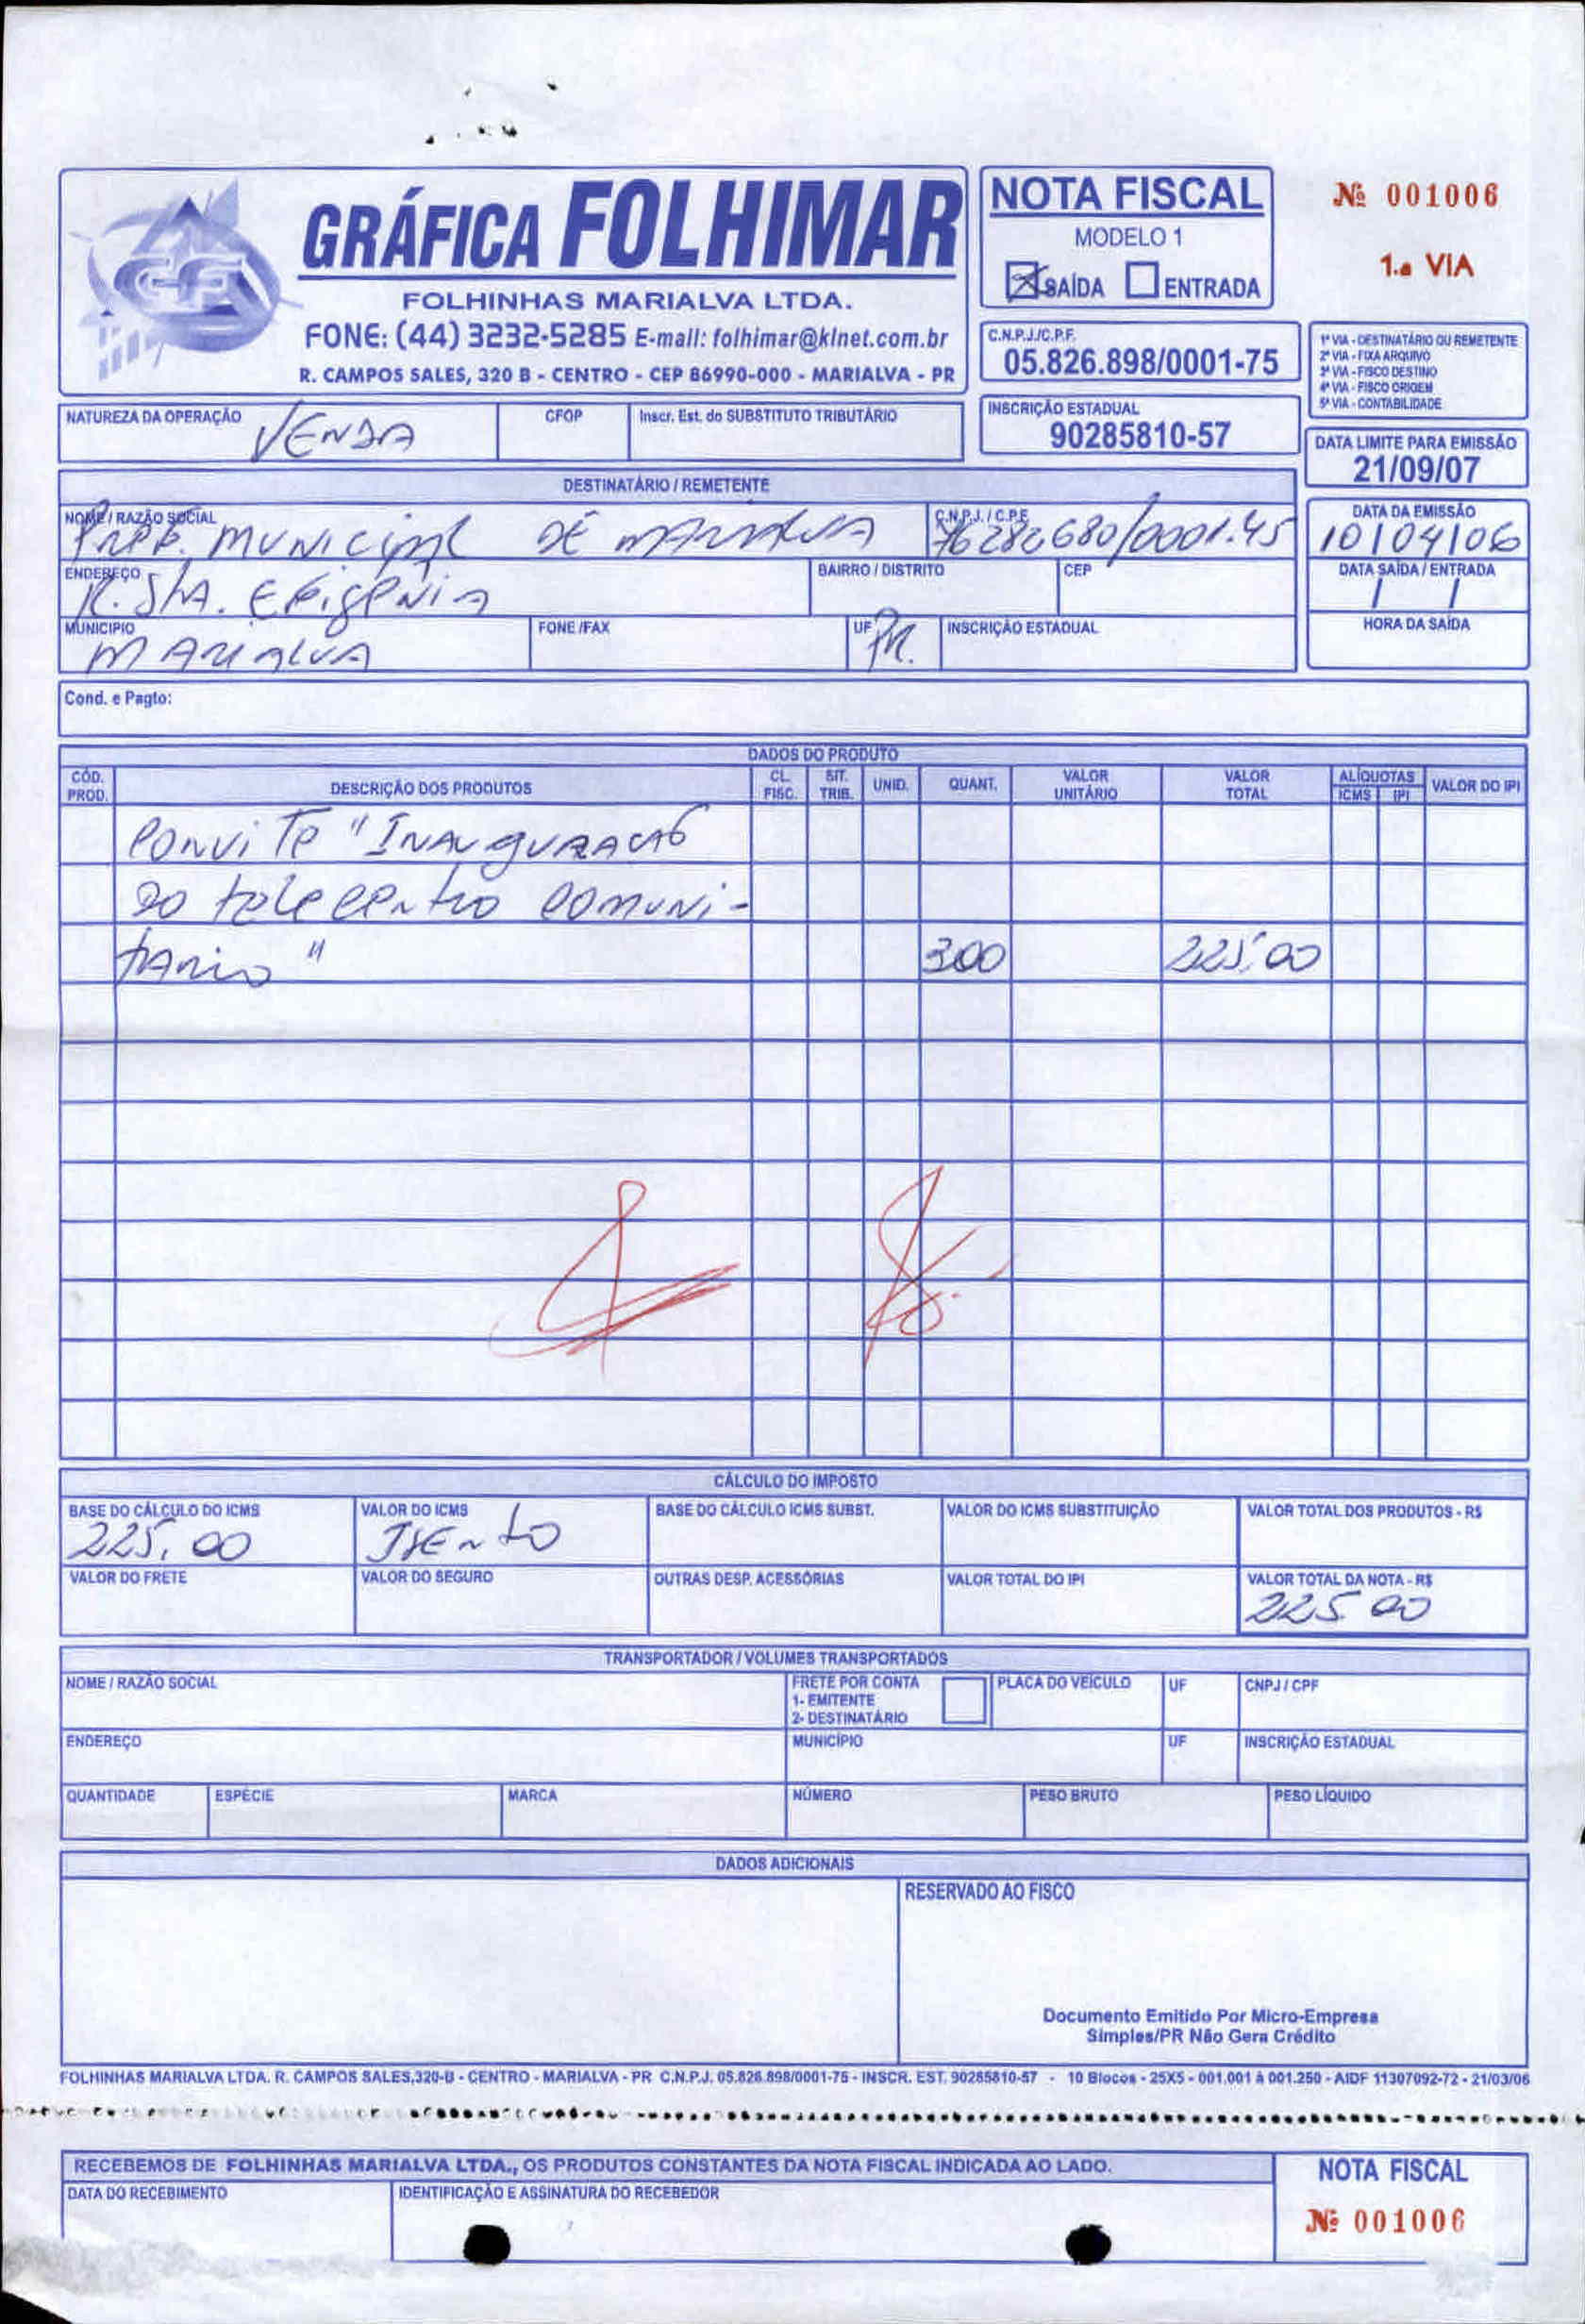 GRÁFICA FOLHIMAR
FOLHINHAS MARIALVA LTDA.
FONE: (44) 3232-5285 E-mail: folhimar@klnet.com.br
R. CAMPOS SALES, 320 B - CENTRO - CEP 86990-000 - MARIALVA - PR
NOTA FISCAL
MODELO 1
X SAÍDA ENTRADA
Nº 001006
1.a VIA
C.N.P.J./C.P.F.
05.826.898/0001-75
1ª VIA - DESTINATÁRIO OU REMETENTE
2ª VIA - FIXA ARQUIVO
3ª VIA - FISCO DESTINO
4ª VIA - FISCO ORIGEM
5ª VIA - CONTABILIDADE
NATUREZA DA OPERAÇÃO VENDA CFOP Inscr. Est. do SUBSTITUTO TRIBUTÁRIO
INSCRIÇÃO ESTADUAL
90285810-57
DATA LIMITE PARA EMISSÃO
21/09/07
DESTINATÁRIO / REMETENTE
NOME / RAZÃO SOCIAL C.N.P.J. / C.P.F. DATA DA EMISSÃO
PREF. MUNICIPAL DE MARIALVA 76282680/0001.45 10/04/06
ENDEREÇO BAIRRO / DISTRITO CEP DATA SAÍDA / ENTRADA
R. STA. EFIGENIA / /
MUNICIPIO FONE /FAX UF PR. INSCRIÇÃO ESTADUAL HORA DA SAÍDA
MARIALVA
Cond. e Pagto:
DADOS DO PRODUTO
CÓD. PROD. DESCRIÇÃO DOS PRODUTOS CL. FISC. SIT. TRIB. UNID. QUANT. VALOR UNITÁRIO VALOR TOTAL ALÍQUOTAS ICMS IPI VALOR DO IPI
CONVITE "INAUGURACAO
DO teleCENtro COMUNI-
TARIO" 300 225,00
CÁLCULO DO IMPOSTO
BASE DO CÁLCULO DO ICMS VALOR DO ICMS BASE DO CÁLCULO ICMS SUBST. VALOR DO ICMS SUBSTITUIÇÃO VALOR TOTAL DOS PRODUTOS - R$
225,00 ISENTO
VALOR DO FRETE VALOR DO SEGURO OUTRAS DESP. ACESSÓRIAS VALOR TOTAL DO IPI VALOR TOTAL DA NOTA - R$
225 00
TRANSPORTADOR / VOLUMES TRANSPORTADOS
NOME / RAZÃO SOCIAL FRETE POR CONTA PLACA DO VEÍCULO UF CNPJ / CPF
1- EMITENTE
2- DESTINATÁRIO
ENDEREÇO MUNICÍPIO UF INSCRIÇÃO ESTADUAL
QUANTIDADE ESPÉCIE MARCA NÚMERO PESO BRUTO PESO LÍQUIDO
DADOS ADICIONAIS
RESERVADO AO FISCO
Documento Emitido Por Micro-Empresa
Simples/PR Não Gera Crédito
FOLHINHAS MARIALVA LTDA. R. CAMPOS SALES,320-B - CENTRO - MARIALVA - PR C.N.P.J. 05.826.898/0001-75 - INSCR. EST. 90285810-57 - 10 Blocos - 25X5 - 001.001 à 001.250 - AIDF 11307092-72 - 21/03/06
RECEBEMOS DE FOLHINHAS MARIALVA LTDA., OS PRODUTOS CONSTANTES DA NOTA FISCAL INDICADA AO LADO.
DATA DO RECEBIMENTO IDENTIFICAÇÃO E ASSINATURA DO RECEBEDOR
NOTA FISCAL
Nº 001006